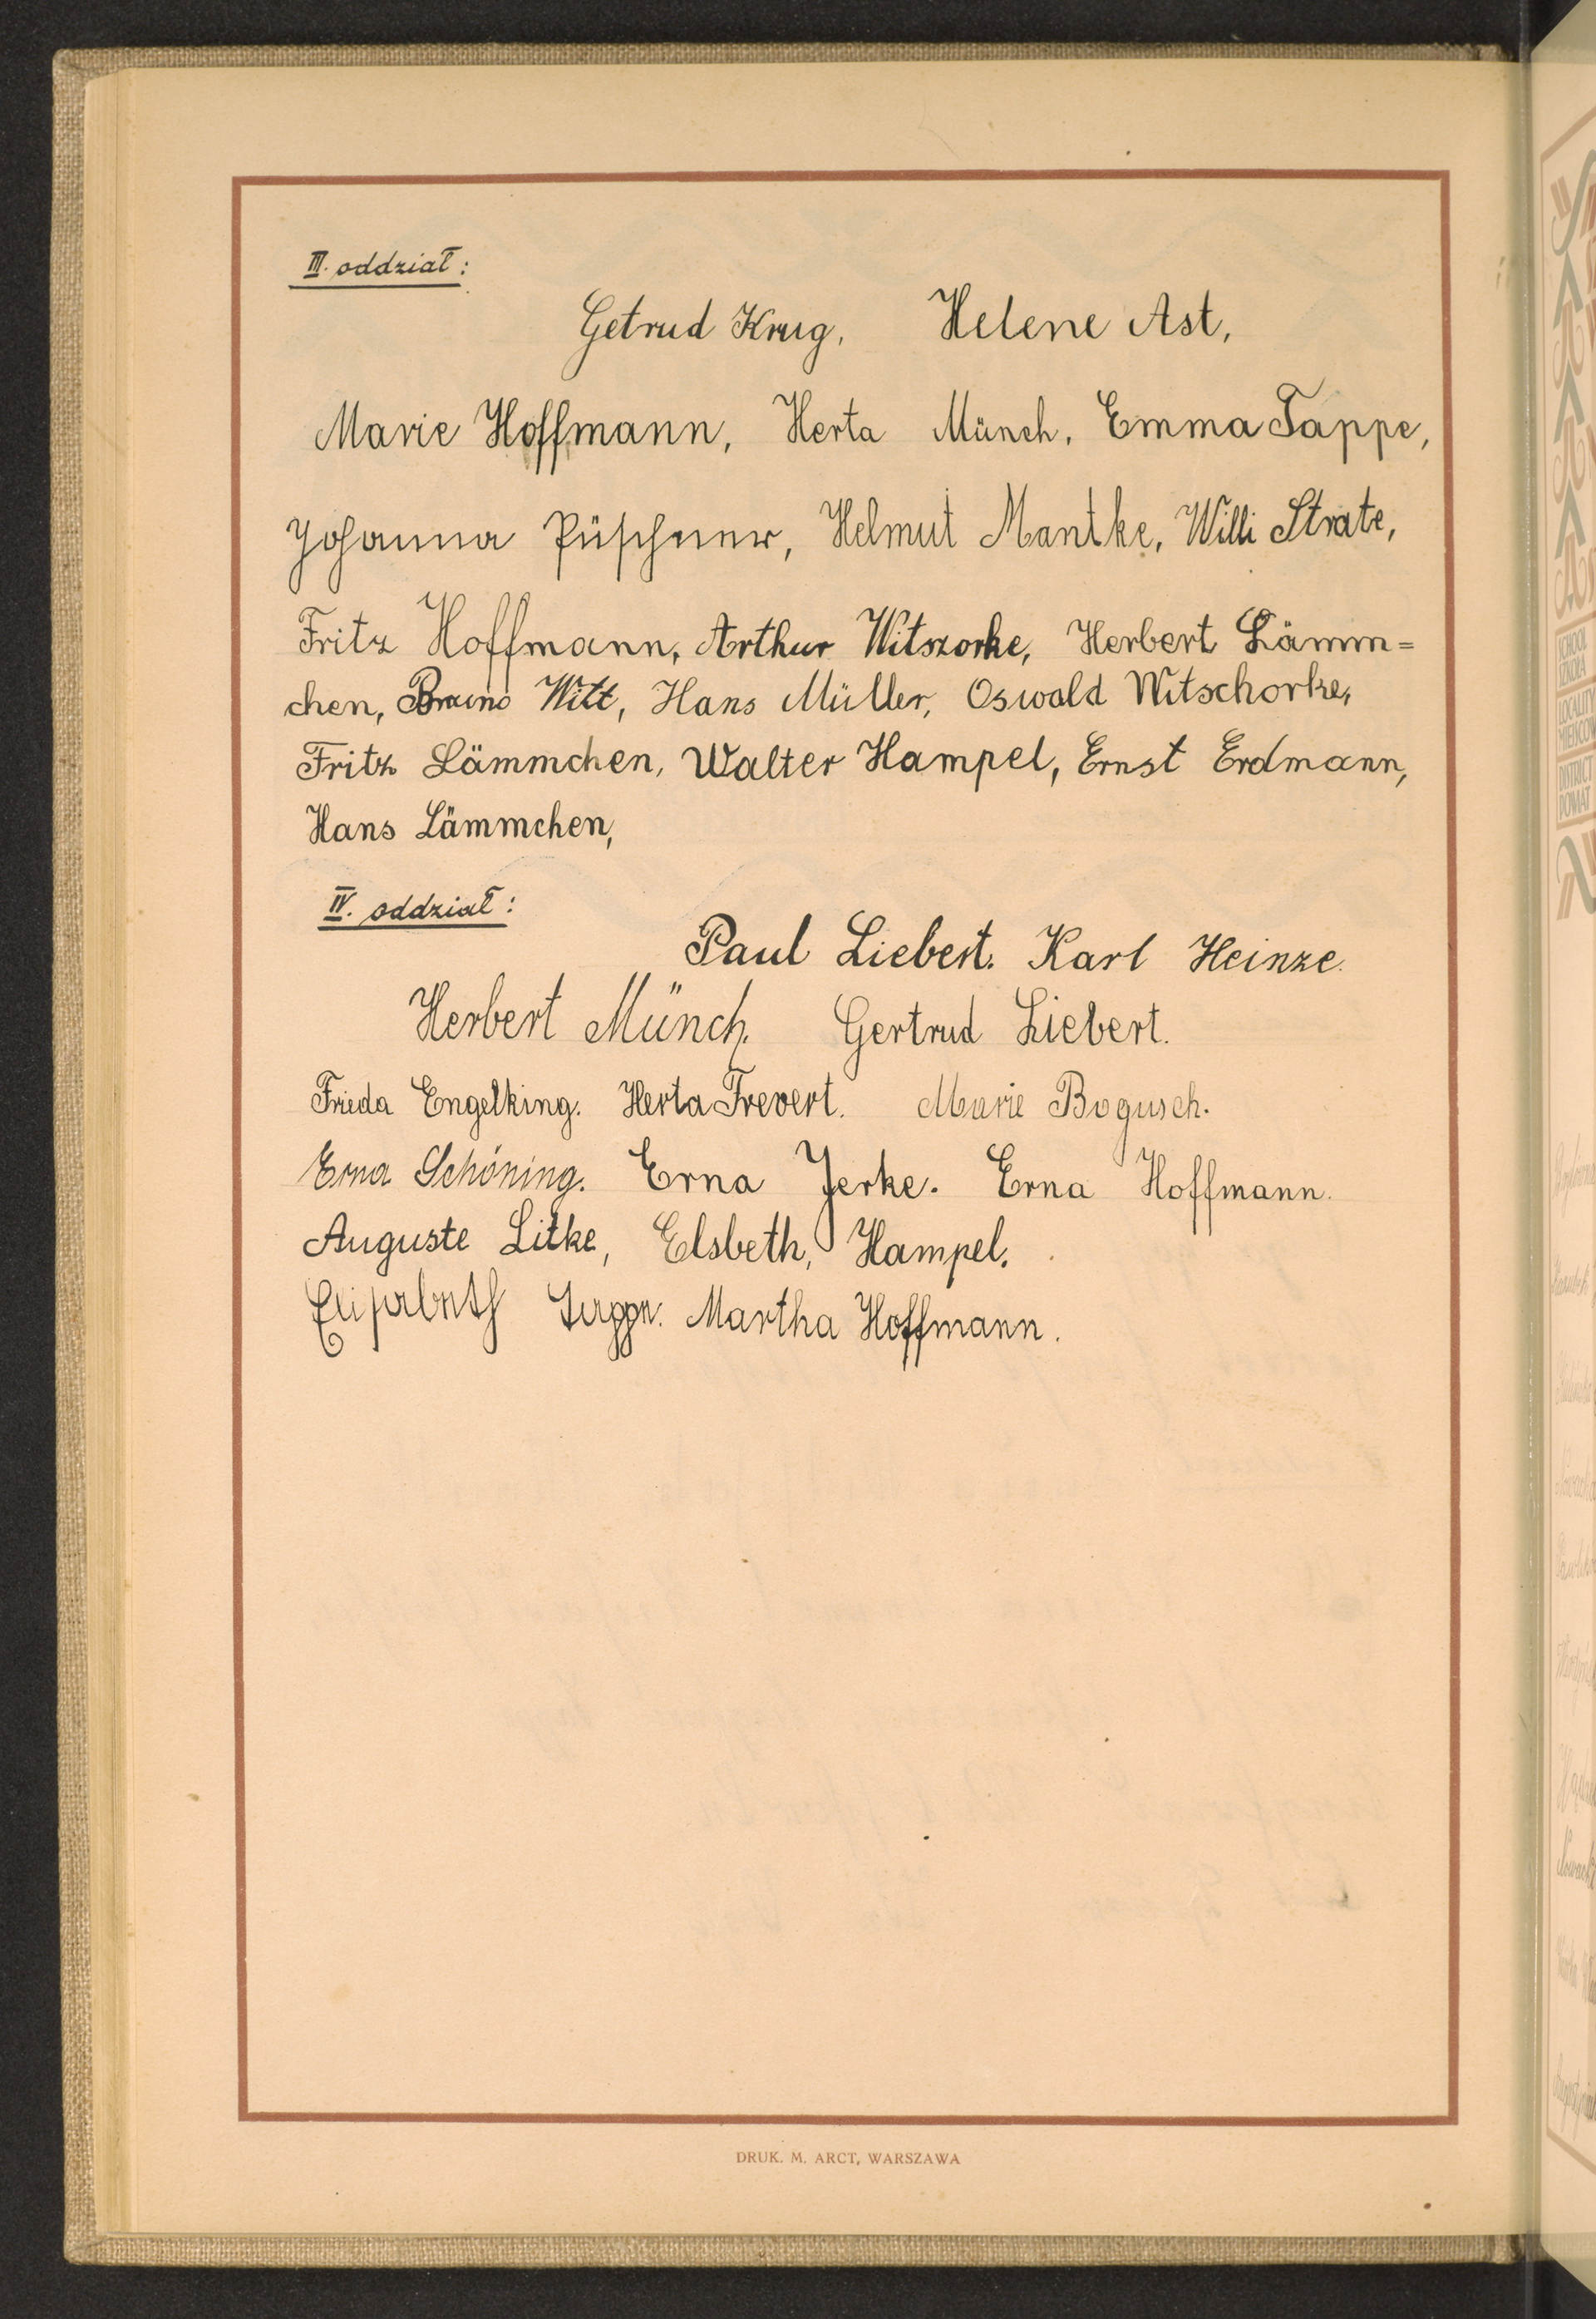 III. oddział:
Getrud Krug, Helene Ast,
Marie Hoffmann, Herta Münch, Emma Tappe,
Johanna Püschner, Helmut Mantke, Willi Strate,
Fritz Hoffmann, Arthur Witszorke, Herbert Lämm=
chen, Bruno Witt, Hans Müller, Oswald Witschorke,
Fritz Lämmchen, Walter Hampel, Ernst Erdmann,
Hans Lämmchen,
IV. oddział:
Paul Liebert. Karl Heinze.
Herbert Münch. Gertrud Liebert.
Frieda Engelking. Herta Frevert. Marie Bogusch.
Erna Schöning. Erna Jerke. Erna Hoffmann.
Auguste Litke, Elsbeth, Hampel.
Elisabeth Tappe. Martha Hoffmann.
DRUK. M. ARCT, WARSZAWA
SCHOOL
SZKOŁA
LOCALITY
DISTRICT
POWIAT